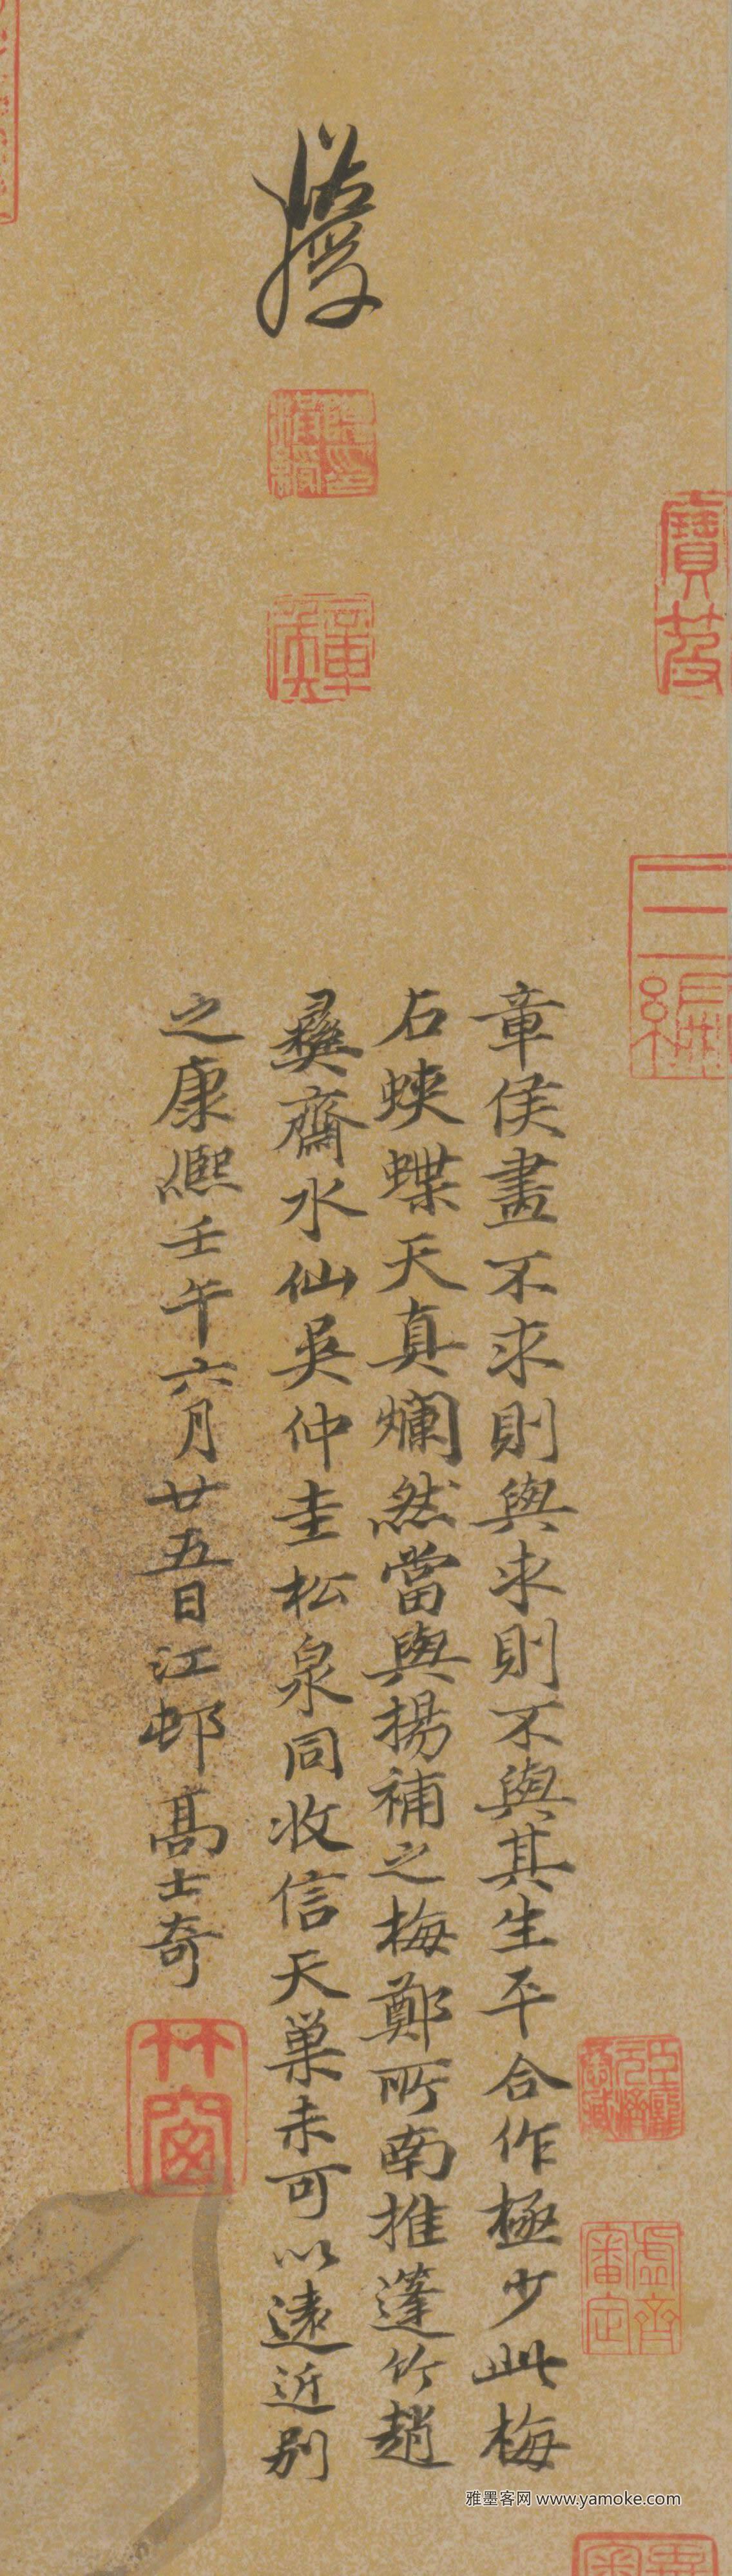 寶笈
三編
章侯畫不求則與求則不與其生平合作極少此梅
石蛺蝶天真爛然當與揚補之梅鄭所南推篷竹趙
彝齋水仙吳仲圭松泉同收信天巢未可以遠近別
之康熙壬午六月廿五日江邨高士奇
竹窗
虛齋審定
章侯
雅墨客网 www.yamoke.com